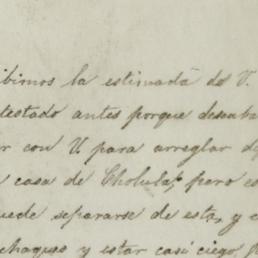 ibimos la estimada de V.
testado antes porque deseaba
r con V para arreglar
casa de Cholula, pero
uede separarse de esta, y
chaques y estar casi ciego